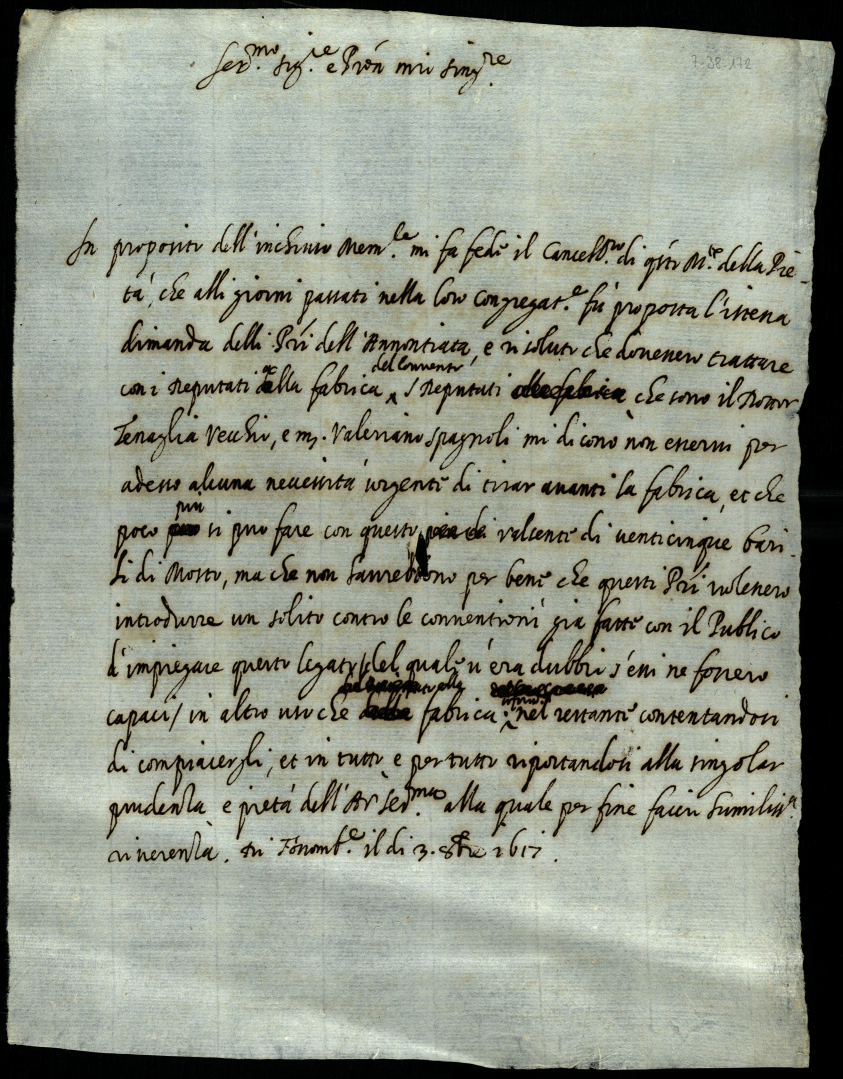 7-38-172
Ser.mo Sig.re e Pron mio sing.re
In proposito dell'inchiuso Mem.le mi fa fede il Cancell.ro di q.sto M.te della Pie-
tà, che alli giorni passati nella loro Congregat.e fù proposta l'istessa
dimanda delli P.ri dell'Annontiata, e risoluto che dovessero trattare
con i Deputati della fabrica del Convento, i Deputati che sono il Dottor
Tenaglia Vecchio, e m. Valeriano Spagnoli mi dicono non esservi per
adesso alcuna necessità urgente di tirar avanti la fabrica, et che
poco più si può fare con questo valsente di venticinque bari-
li di Mosto, ma che non saurebbono per bene che questi P.ri volessero
introdurre un solito contro le conventioni già fatte con il Publico
d'impiegare questo legato/ del quale v'era dubbio s'essi ne fossero
capaci/ in altro uso che fabrica, nel restante contentandosi
di compiacergli, et in tutto e per tutto riportandosi alla singolar
prudenza e pietà dell'A.V. Ser.ma alla quale per fine faccio humiliss.a
riverenza. Di Fossomb.e il dì 3. 8bre 1617.